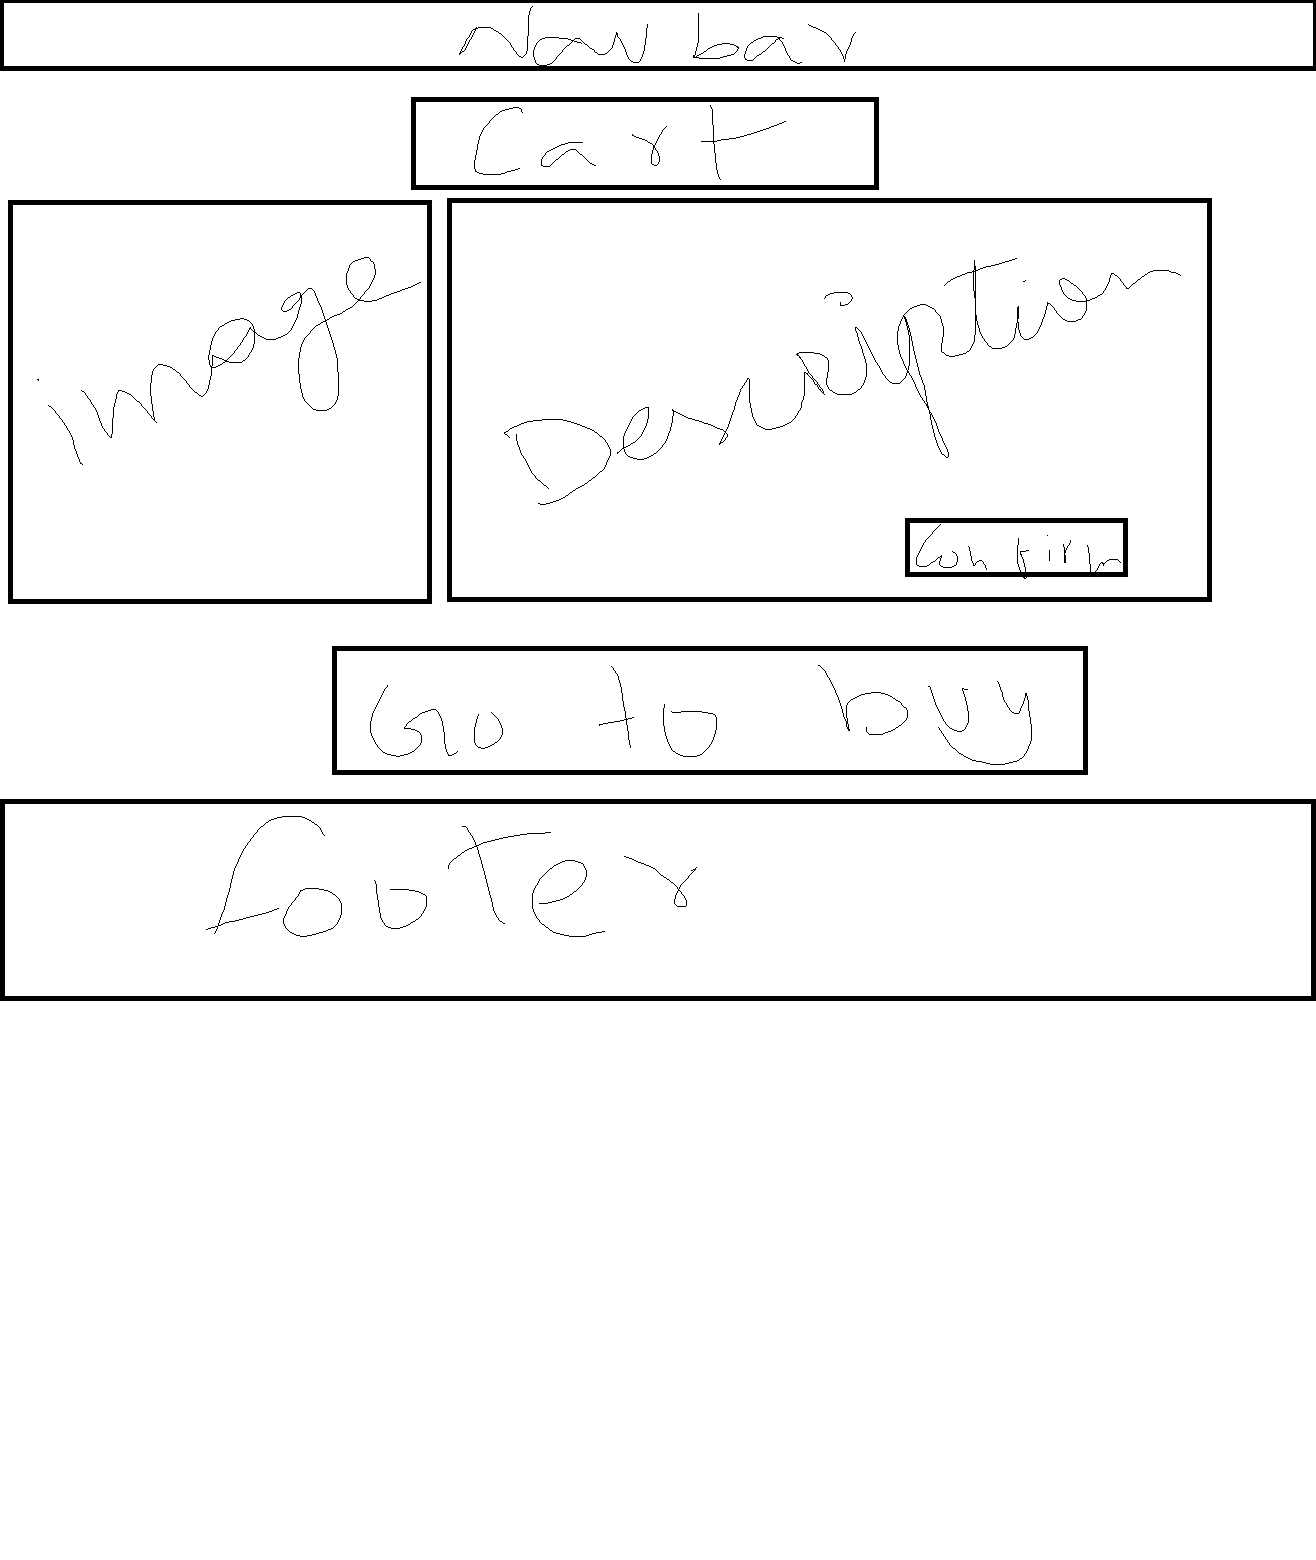 Nav bar
Cart
image
Description
Confirm
Go to buy
footer